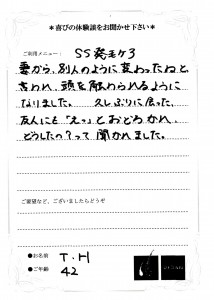 ＊喜びの体験談をお聞かせ下さい＊
ご利用メニュー：
SS発モケ3
妻から、別人のように変わったねと、
言われ、頭を触わられるように
なりました。 久しぶりに戻った、
友人にも「えっ」とおどろかれ、
どうしたの？って聞かれました。
ご要望など、ございましたらどうぞ
●お名前 T.H
●ご年齢 42